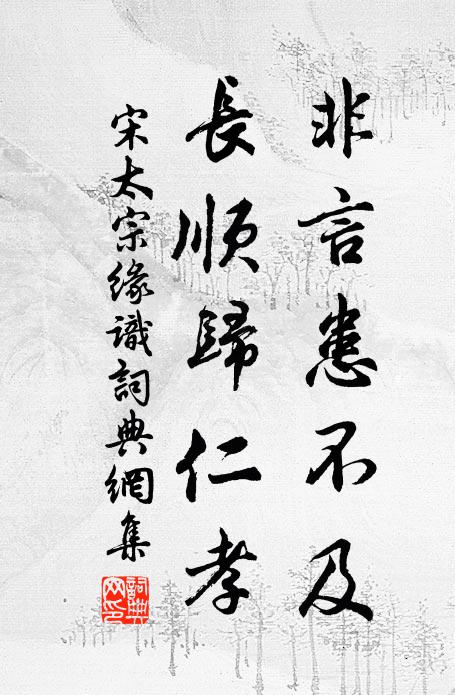 非言患不及
長順歸仁孝
宋太宗緣識詞典網集
詞典网印